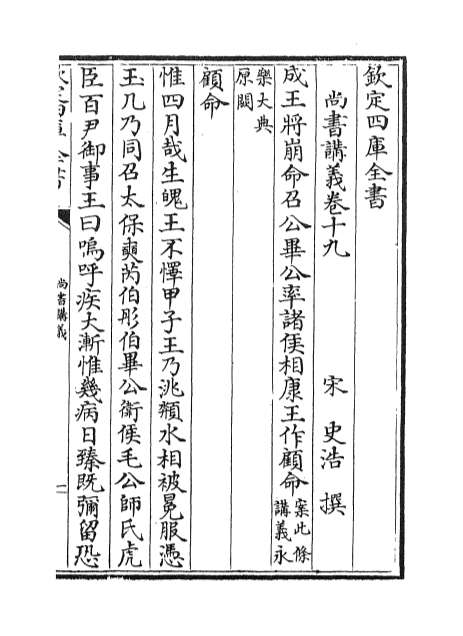 欽定四庫全書
尚書講義卷十九
宋 史浩 撰
成王將崩命召公畢公率諸侯相康王作顧命案此條
講義永
樂大典
原闕
顧命
惟四月哉生魄王不懌甲子王乃洮頮水相被冕服憑
玉几乃同召太保奭芮伯彤伯畢公衛侯毛公師氏虎
臣百尹御事王曰嗚呼疾大漸惟幾病日臻既彌留恐
尚書講義
一